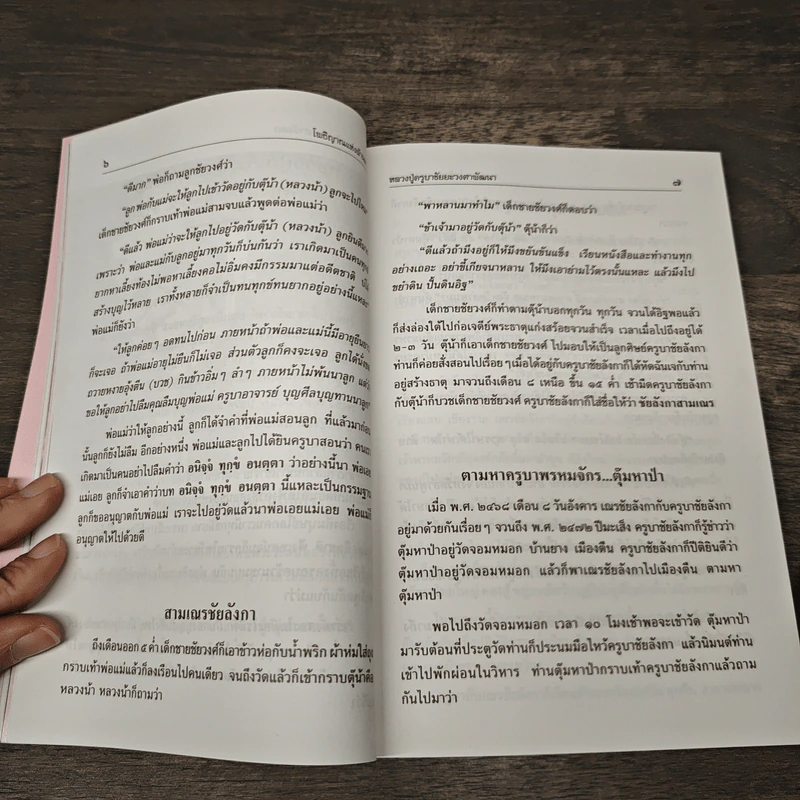 ๖
โพธิญาณแห่งล้าน
"ดีมาก" พ่อก็ถามลูกชัยวงศ์ว่า
"ลูก พ่อกับแม่จะให้ลูกไปเข้าวัดอยู่กับตุ๊น้า (หลวงน้า) ลูกจะไปไหม"
เด็กชายชัยวงศ์ก็กราบเท้าพ่อแม่สามจบแล้วพูดต่อพ่อแม่ว่า
"ดีแล้ว พ่อแม่ว่าจะให้ลูกไปอยู่วัดกับตุ๊น้า (หลวงน้า) ลูกยินดี
เพราะว่า พ่อและแม่กับลูกอยู่มาทุกวันก็บ่นกันว่า เราเกิดมาเป็นคนทุกข์
ยากหาเลี้ยงท้องไม่พอหาเลี้ยงคอไม่อิ่มคงมีกรรมมาแต่อดีตชาติ
สร้างบุญไว้หลาย เราทั้งหลายก็จำเป็นทนทุกข์ทนยากอยู่อย่างนี้แหละ"
พ่อแม่ก็ยังว่า
"ให้ลูกค่อยๆ อดทนไปก่อน ภายหน้าถ้าพ่อและแม่นี้มีอายุยืน
ก็จะเจอ ถ้าพ่อแม่อายุไม่ยืนก็ไม่เจอ ส่วนตัวลูกก็คงจะเจอ ลูกได้นั่ง
ถวายหงายอุ้งตีน (บวช) กินข้าวอิ่มๆ ลำๆ ภายหน้าไม่พ้นนาลูก แต่ว่า
ขอให้ลูกอย่าไปลืมคุณลืมบุญพ่อแม่ ครูบาอาจารย์ บุญศีลบุญทานนาลูก"
พ่อแม่ว่าให้ลูกอย่างนี้ ลูกก็ได้จำคำที่พ่อแม่สอนลูก ที่แล้วมาก่อน
นั้นลูกก็ยังไม่ลืม อีกอย่างหนึ่ง พ่อแม่และลูกไปได้ยินครูบาสอนว่า คนเรา
เกิดมาเป็นคนอย่าไปลืมคำว่า อนิจฺจํ ทุกฺขํ อนตฺตา ว่าอย่างนี้นา พ่อเอย
แม่เอย ลูกก็จำเอาคำว่าบท อนิจฺจํ ทุกฺขํ อนตฺตา นี้แหละเป็นกรรมฐาน
ลูกก็ขออนุญาตกับพ่อแม่ เราจะไปอยู่วัดแล้วนาพ่อเอยแม่เอย พ่อแม่ก็
อนุญาตให้ไปด้วยดี
สามเณรชัยลังกา
ถึงเดือนออก ๕ ค่ำ เด็กชายชัยวงศ์ก็เอาข้าวห่อกับน้ำพริก ผ้าห่มใส่ถุง
กราบเท้าพ่อแม่แล้วก็ลงเรือนไปคนเดียว จนถึงวัดแล้วก็เข้ากราบตุ๊น้าคือ
หลวงน้า หลวงน้าก็ถามว่า
หลวงปู่ครูบาชัยยะวงศาพัฒนา
๗
"พาหลานมาทำไม" เด็กชายชัยวงศ์ก็ตอบว่า
"ข้าเจ้ามาอยู่วัดกับตุ๊น้า" ตุ๊น้าก็ว่า
"ดีแล้วถ้ามึงอยู่ก็ให้มึงขยันขันแข็ง เรียนหนังสือและทำงานทุก
อย่างเถอะ อย่าขี้เกียจนาหลาน ให้มึงเอาย่ามไว้ตรงนั้นแหละ แล้วมึงไป
ย่ำดิน ปั้นดินอิฐ"
เด็กชายชัยวงศ์ก็ทำตามตุ๊น้าบอกทุกวัน ทุกวัน จวนได้อิฐพอแล้ว
ก็ส่งล่องใต้ไปก่อเจดีย์พระธาตุแก่งสร้อยจวนสำเร็จ เวลาเมื่อไปถึงอยู่ได้
๒-๓ วัน ตุ๊น้าก็เอาเด็กชายชัยวงศ์ ไปมอบให้เป็นลูกศิษย์ครูบาชัยลังกา
ท่านก็ค่อยสั่งสอนไปเรื่อยๆเมื่อได้อยู่กับครูบาชัยลังกาก็ได้หัดฉันเจกับท่าน
อยู่สร้างธาตุ มาจวนถึงเดือน ๘ เหนือ ขึ้น ๑๕ ค่ำ เช้ามืดครูบาชัยลังกา
กับตุ๊น้าก็บวชเด็กชายชัยวงศ์ ครูบาชัยลังกาก็ใส่ชื่อให้ว่า ชัยลังกาสามเณร
ตามหาครูบาพรหมจักร...ตุ๊มหาป่า
เมื่อ พ.ศ. ๒๔๖๘ เดือน ๘ วันอังคาร เณรชัยลังกากับครูบาชัยลังกา
อยู่มาด้วยกันเรื่อยๆ จวนถึง พ.ศ. ๒๔๗๒ ปีมะเส็ง ครูบาชัยลังกาก็รู้ข่าวว่า
ตุ๊มหาป่าอยู่วัดจอมหมอก บ้านยาง เมืองตืน ครูบาชัยลังกาก็ปีติยินดีว่า
ตุ๊มหาป่าอยู่วัดจอมหมอก แล้วก็พาเณรชัยลังกาไปเมืองตืน ตามหา
ตุ๊มหาป่า
พอไปถึงวัดจอมหมอก เวลา ๑๐ โมงเช้าพอจะเข้าวัด ตุ๊มหาป่า
มารับต้อนที่ประตูวัดท่านก็ประนมมือไหว้ครูบาชัยลังกา แล้วนิมนต์ท่าน
เข้าไปพักผ่อนในวิหาร ท่านตุ๊มหาป่ากราบเท้าครูบาชัยลังกาแล้วถาม
กันไปมาว่า